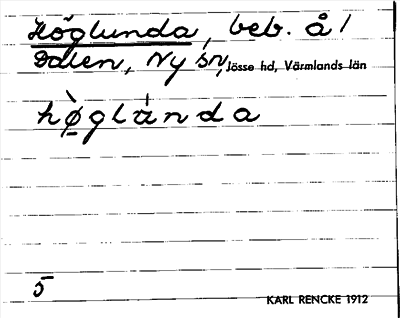 Höglunda, beb. å /
Dalen, Ny sn, Jösse hd, Värmlands län
hø̀glånda
5
KARL RENCKE 1912